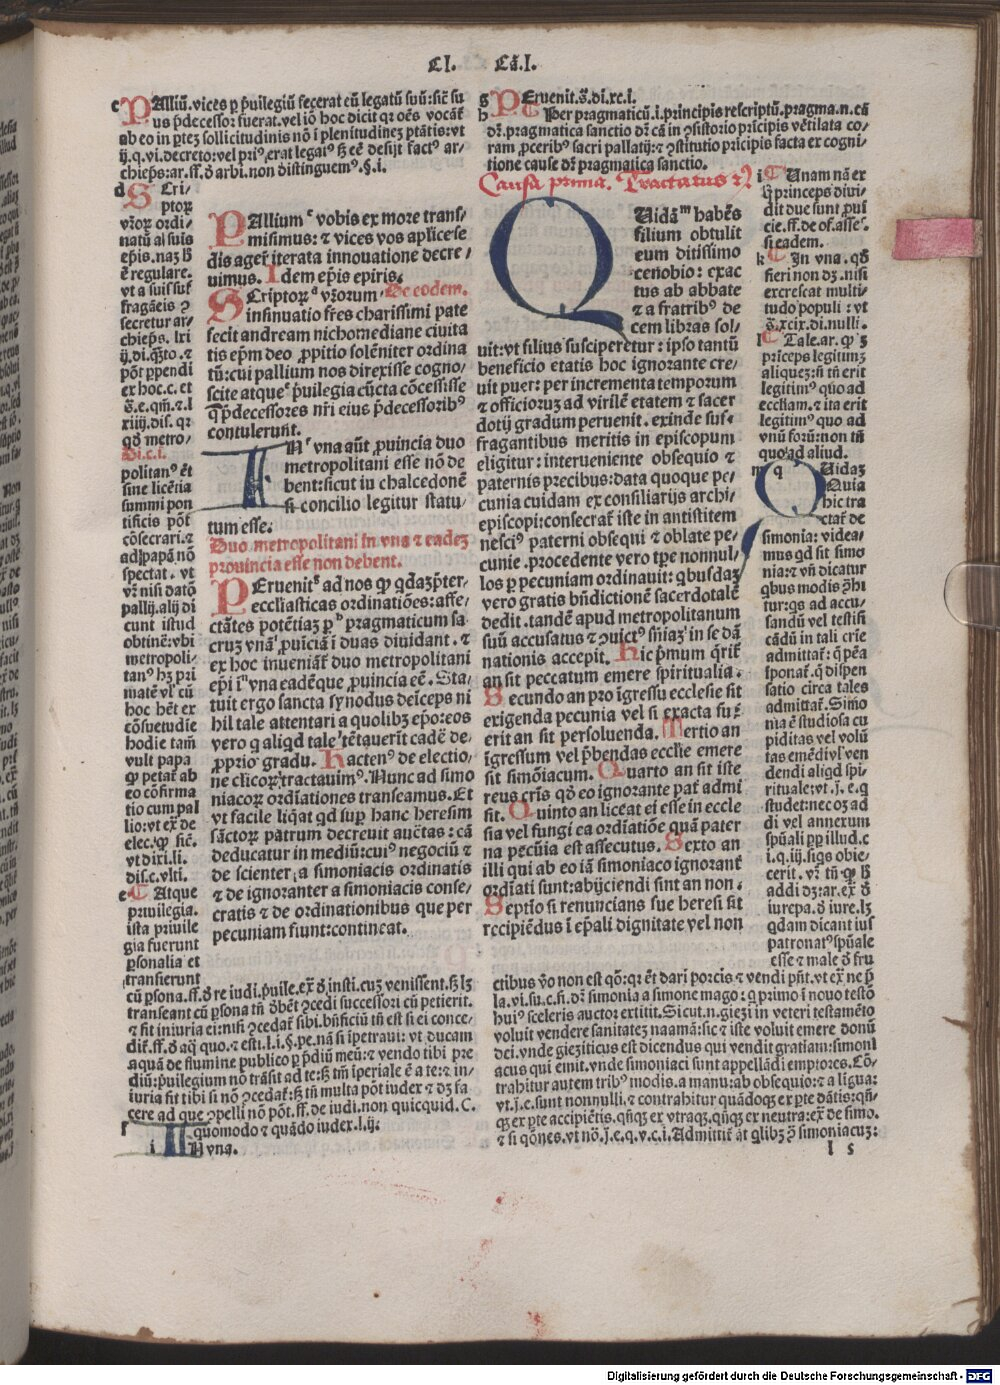 CI. Cā.I.
c PAlliū.vices ꝑ p̄uilegiū fecerat eū legatū suū:sic̄ su
us p̄decessor fuerat.vel iō hoc dicit qꝛ oēs vocāt̄
ab eo in ꝑtez sollicitudinis nō ī plenitudinez ptātis:vt
ij.q.vi.decreto:vel priꝰ,erat legatꝰ ꝫ eē desijt factꝰ ar-
chiep̄s:ar.ff.ð arbi.non distinguemꝰ.§.i.
d SCri-
ptoꝝ
vr̄oꝝ ordi-
natū al suis
ep̄is.naꝫ lꝫ
ē regulare.
vt a suis suf
fragāeis ꝯ
secretur ar-
chiep̄s. lxi
ij.di.q̄sto.ꞇ
pōt ꝑpendi
ex hoc.c. et
s̄.e.qm̄.ꞇ.l
xiiij.dis. qꝛ
qð metro-
politanꝰ ēt
sine licētia
summi pon
tificis pōt
cōsecrari.ꞇ
ad papā nō
spectat. vt
vr̄ nisi datō
pallij.alij di
cunt istud
obtinē:vbi
metropoli-
tanꝰ hꝫ pri
matē vl̄ cū
hoc hēt ex
cōsuetudie
hodie tam̄
vult papa
ꝙ petat̄ ab
eo cōfirma
tio cum pal
lio:vt ex̄ de
elec.qꝫ sic̄.
vt dixi.li.
dis.c.vlti.
e Atque
priuilegia.
ista priuile
gia fuerunt
ꝑsonalia et
transierunt
cū ꝑsona.ff.ð re iudi.p̄uile.ex̄ ð insti.cuꝫ venissent.ꝫ lꝫ
transeant cū ꝑsona tn̄ ð̄bēt ꝯcedi successori cū petierit.
ꞇ fit iniuria ei:nisi ꝯcedat̄ sibi.bn̄ficiū tn̄ est si ei conce-
dit̄.ff.ð aq̄ quo.ꞇ esti.l.i.§.pe.nā si īpetraui: vt ducam
aquā de flumine publico ꝑ p̄diū meū:ꞇ vendo tibi pre
diū:p̄uilegium nō trāsit ad te:ꝫ tm̄ īperiale ē a te:ꞇ in-
iuria fit tibi si nō ꝯcedat̄:ꝫ tn̄ multa pōt iudex ꞇ dꝫ fa
cere ad que ꝯpelli nō pōt.ff.de iudi.non quicquid.C.
quomodo ꞇ quādo iudex.l.ij.
f IN vna.
PAllium ᵉ vobis ex more trans-
misimus: ꞇ vices vos aplice se
dis agere iterata innouatione decre-
uimus. Idem ep̄is epiris.
SCriptoꝝ ᵈ vr̄orum De eodem.
insinuatio fr̄es charissimi pate
fecit andream nichomediane ciuita
tis ep̄m deo ꝓpitio solēniter ordina
tū:cui pallium nos direxisse cogno-
scite atque ᵉ p̄uilegia cūcta cōcessisse
q̄ p̄decessores nr̄i eius p̄decessoribꝰ
contulerunt.
Di.c.i.
IN ᶠ vna aūt ꝓuincia duo
metropolitani esse nō de
bent:sicut iu chalcedonē
si concilio legitur statu-
tum esse.
Duo metropolitani in vna ꞇ eadeꝫ
prouincia esse non debent.
PEruenit ᵍ ad nos ꝙ qdaꝫ p̄ter-
ecclīasticas ordinatiōes: affe-
ctātes potētiaꝫ ꝑ ʰ pragmaticum sa-
cruꝫ vnāⁱ ꝓuīciā ī duas diuidant. ꞇ
ex hoc inueniāt̄ duo metropolitani
ep̄i īˡ vna eadēque ꝓuincia eē. Sta-
tuit ergo sancta synodus deīceps ni
hil tale attentari a quolibꝫ ep̄o:eos
vero q̄ aliqd tale ˡ tētauerīt cadē de-
ꝓprio gradu. Hactenꝰ de electio-
ne clicoꝝ tractauimꝰ. Nunc ad simo
niacoꝝ ordīationes transeamus. Et
vt facile liqat̄ qd suꝑ hanc heresim
sāctoꝝ patrum decreuit auctas: cā
deducatur in mediū:cuiꝰ negociū ꞇ
de scienter a simoniacis ordinatis
ꞇ de ignoranter a simoniacis conse-
cratis ꞇ de ordinationibus que per
pecuniam fiunt:contineat.
g PEruenit.s̄.di.xc.i.
h Per pragmaticū.i.principis rescriptū.pragma.n.cā
dr̄.pragmatica sanctio dr̄ cā in ꝯsistorio prīcipis vētilata co-
ram ꝓceribꝰ sacri pallatij: ꞇ ꝯstitutio pricipis facta ex cogni-
tione cause dr̄ pragmatica sanctio.
Causa prima. Tractatus
QUidāᵐ habēs
filium obtulit
eum ditissimo
cenobio: exac
tus ab abbate
ꞇ a fratribꝰ de
cem libras sol-
uit:vt filius susciperetur: ipso tantū
beneficio etatis hoc ignorante cre-
uit puer: per incrementa temporum
ꞇ officioruꝫ ad virilē etatem ꞇ sacer
dotij gradum peruenit. exinde suf-
fragantibus meritis in episcopum
eligitur: interueniente obsequio ꞇ
paternis precibus:data quoque pe-
cunia cuidam ex consiliarijs archi-
episcopi:consecrat̄ iste in antistitem
nesciꝰ paterni obsequi ꞇ oblate pe-
cunie.procedente vero tp̄e nonnul-
los ꝑ pecuniam ordinauit: qbusdaꝫ
vero gratis bn̄dictionē sacerdotalē
dedit.tandē apud metropolitanum
suū accusatus ꞇ ꝯuictꝰ sn̄iaꝫ in se dā
nationis accepit. Hic p̄mum q̄rit̄
an sit peccatum emere spiritualia.
Secundo an pro īgressu ecclesie sit
exigenda pecunia vel si exacta fu
erit an sit persoluenda. Tertio an
īgressum vel p̄bendas ecclīe emere
sit simōiacum. Quarto an sit iste
reus crīs qð eo ignorante pat̄ admi
sit. Quinto an liceat ei esse in eccle
sia vel fungi ea ordīatiōe quā pater
na pecūia est assecutus. Sexto an
illi qui ab eo iā simoniaco ignorant̄
ordīati sunt:abijciendi sint an non.
Septīo si renuncians sue heresi sit
recipiēdus ī ep̄ali dignitate vel non
i Vnam nā ex
q̄ princeps diui-
dit due sunt ꝓuī
cie.ff.de of.asse.
si eadem.
k In vna. qð
fieri non dꝫ .nisi
excrescat multi-
tudo populi : vt
s̄.xcix.di.nulli.
l Tale.ar. ꝙ ꝫ
prīceps legitimꝫ
aliqueꝫ:ñ tn̄ erit
legitimꝰ quo ad
eccliam.ꞇ ita erit
legitimꝰ quo ad
vnū forū:non tn̄
quo ad aliud.
m QUidaꝫ
Quia
hic tra
ctat̄ de
simonia: videa-
mus qd sit simo
nia:ꞇ vn̄ dicatur
qbus modis ꝯ̄hi
tur:qs ad accu-
sandū vel testifi
cādū in tali crīe
admittat̄: q̄ pēa
īponat̄. q̄ dispen
satio circa tales
admittat̄. Simo
nia ē studiosa cu
piditas vel volū
tas emēdi vl̄ ven
dendi aliqd spi-
rituale:vt .j.e.q
studet:nec oꝫ ad
di vel annexum
spūali ꝓp̄ illud.c
i.q.iij.siqs obie-
cerit. vr̄ tn̄ ꝙ lꝫ
addi dꝫ:ar.ex̄ ð
iurepa.ð iure.lꝫ
qdam dicant ius
patronatꝰ spūale
esse ꞇ male ð fru
ctibus v̄o non est qō:qꝛ ēt dari porcis ꞇ vendi pn̄t.vt ex̄ ne p̄
la.vi.su.c.si.dr̄ simonia a simone mago: q̄ primo ī nouo testō
huiꝰ sceleris auctor extitit.Sicut.n.giezi in veteri testamēto
voluit vendere sanitateꝫ naamā:sic ꞇ iste voluit emere donū
dei.vnde giezīticus est dicendus qui vendit gratiam:simoni
acus qui emit.vnde simoniaci sunt appellādi emptores.Cō-
trahitur autem tribꝰ modis.a manu:ab obsequio:ꞇ a līgua:
vt.j.e.sunt nonnulli.ꞇ contrahitur quādoqꝫ ex ꝑte dātis:qn̄-
qꝫ ex ꝑte accipiētis.qn̄qꝫ ex vtraqꝫ.qn̄qꝫ ex neutra:ex̄ de simo.
ꞇ si qōnes.vt nō.j.e.q.v.c.i.Admittit̄ āt qlibꝫ p̄ simoniacuꝫ:
l 5
Digitalisierung gefördert durch die Deutsche Forschungsgemeinschaft - DFG